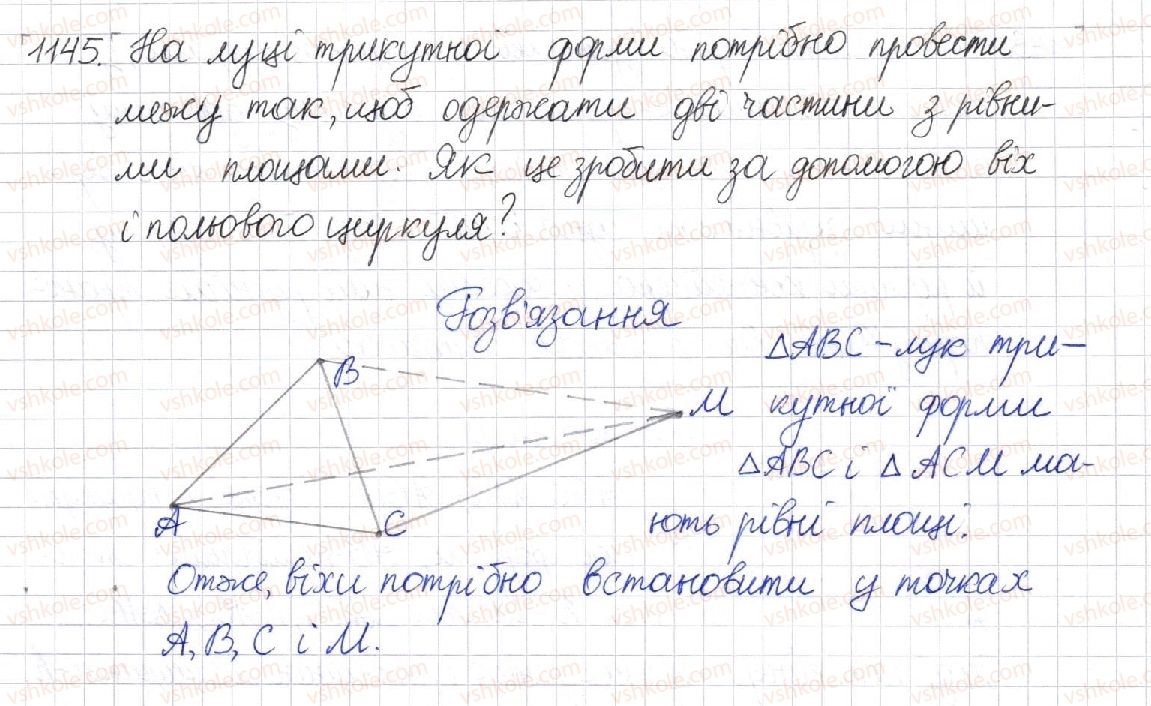 1145. На луці трикутної форми потрібно провести
межу так, щоб одержати дві частини з рівни-
ми площами. Як це зробити за допомогою віх
і польового циркуля?
Розв'язання
△ABC - лук три-
кутної форми
△ABC і △ACM ма-
ють рівні площі.
Отже, віхи потрібно встановити у точках
A, B, C і M.
B
M
A
C
vshkole.com